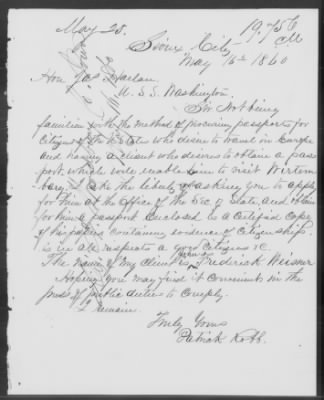 May 25.
19,756
Sioux City
May 16th 1860
Hon Jas Harlan
U.S.S. Washington
Sir Not being
familiar with the method of procuring passports for
Citizens of the U States who desire to travel in Europe
and having a client who desires to obtain a pass
port, which will enable him to visit Wirtem
berg, I take the liberty of asking you to apply
for him at the office of the Sec of State, and obtain
for him a passport Enclosed is a Certified Copy
of his papers containing evidence of Citizenship.
is in all respects a good Citizen &c.
The name of my Client is Frederick Weisner
Hoping you may find it convenient in the
press of public duties to Comply.
I remain
Truly Yours
Patrick Robb.